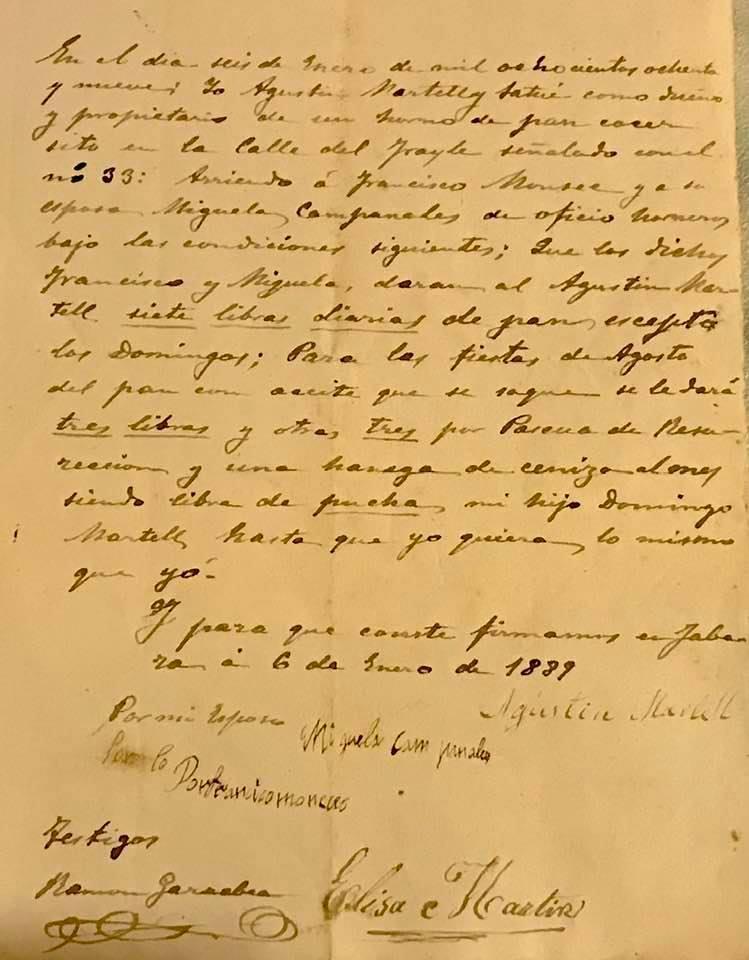 En el dia seis de Enero de mil ochocientos ochenta
y nueve; Yo Agustin Martell y Satué como dueño
y propietario de un horno de pan cocer
sito en la Calle del Frayle señalado con el
nº 33: Arriendo á Francisco Monsec y a su
esposa Miguela Campanales de oficio horneros
bajo las condiciones siguientes; Que los dichos
Francisco y Miguela, daran al Agustin Mar-
tell siete libras diarias de pan escepto
los Domingos; Para las fiestas de Agosto
del pan con aceite que se saque se le dará
tres libras y otras tres por Pascua de Resu-
rreccion y una hanega de ceniza al mes
siendo libra de pucha, mi hijo Domingo
Martell, hasta que yo quiera, lo mismo
que yó-
Y para que conste firmamos en Faba-
ra á 6 de Enero de 1889
Agustin Martell
Por mi Esposo Miguela Campanales
Testigos
Ramon
Elisa Martin